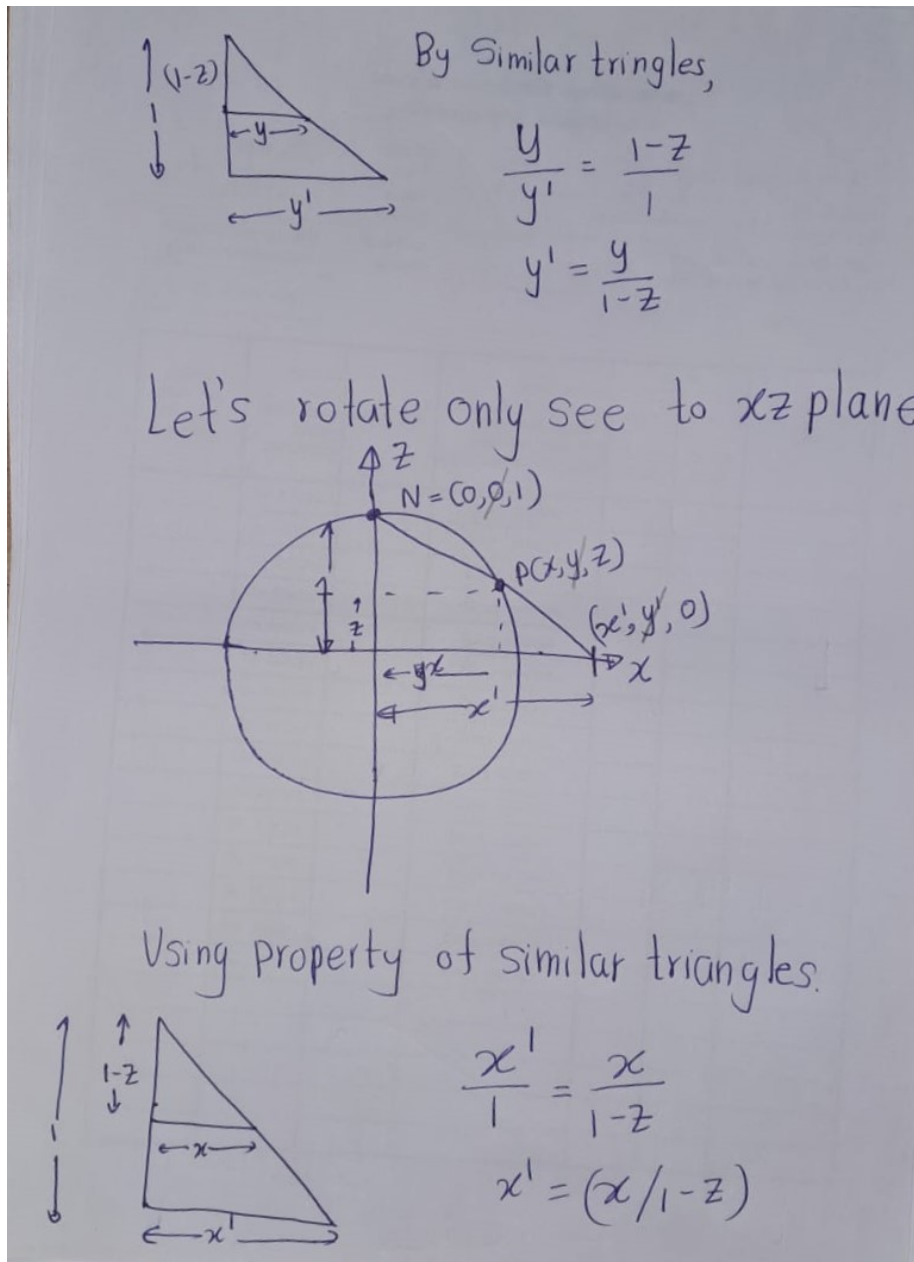 By Similar tringles,
(1-z)
1
y
y'
y/y' = (1-z)/1
y' = y/(1-z)
Let's rotate only see to xz plane
z
N = (0,0,1)
P(x,y,z)
(x',y',0)
1
z
x
x
x'
Using property of similar triangles.
1
1-z
x
x'
x'/1 = x/(1-z)
x' = (x/1-z)